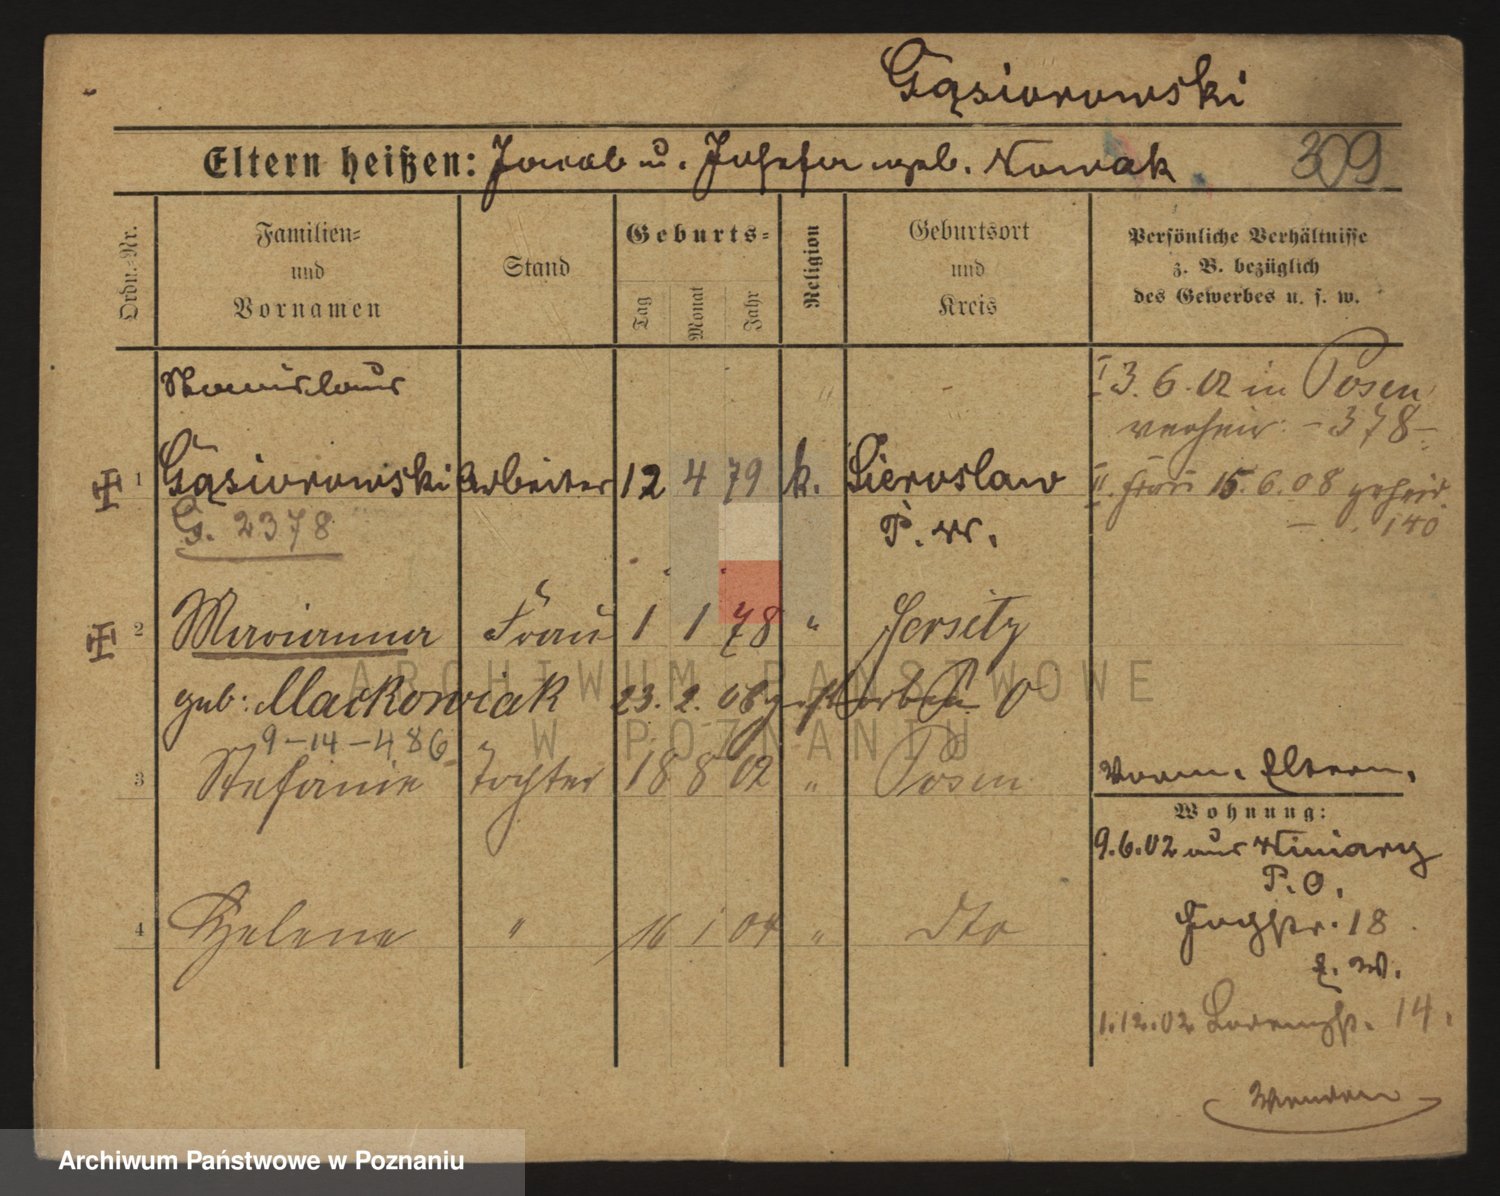 Gąsiorowski
Eltern heißen: Jacob u. Josefa geb. Nowak 309
Ordn.-Nr. Familien- und Vornamen Stand Geburts- Tag Monat Jahr Religion Geburtsort und Kreis Persönliche Verhältnisse z. B. bezüglich des Gewerbes u. s. w.
Stanislaus
I 3. 6. 02 in Posen
verheir. - 378 -
1 Gąsiorowski Arbeiter 12 4 79 k. Sieroslaw
II. Frau 15. 6. 08 geheir
- 140
G. 2378
P. W.
2 Marianna Frau 1 1 78 " Jersitz
geb. Mackowiak 23. 2. 08 gestorben P. O
9-14-486
3 Stefanie Tochter 18 8 02 " Posen
Vorm. Eltern.
Wohnung:
9.6.02 aus Winiary
P. O.
4 Helene " 16 1 04 " dto
18
E. W.
1.12.02 Lorenzstr. 14.
Wenden
ARCHIWUM PAŃSTWOWE
W POZNANIU
Archiwum Państwowe w Poznaniu